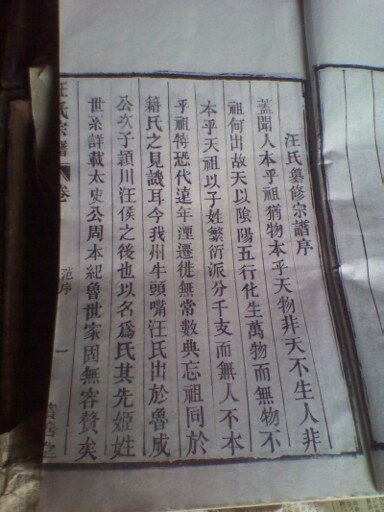 汪氏纂修宗譜序
蓋聞人本乎祖猶物本乎天物非天不生人非
祖何出故天以陰陽五行化生萬物而無物不
本乎天祖以子姓繁衍派分千支而無人不本
乎祖特恐代遠年湮遷徙無常數典忘祖同於
籍氏之見譏耳今我州牛頭嘴汪氏出於魯成
公次子潁川汪侯之後也以名爲氏其先姬姓
世系詳載太史公周本紀魯世家固無容贅矣
汪氏宗譜
卷
序
一